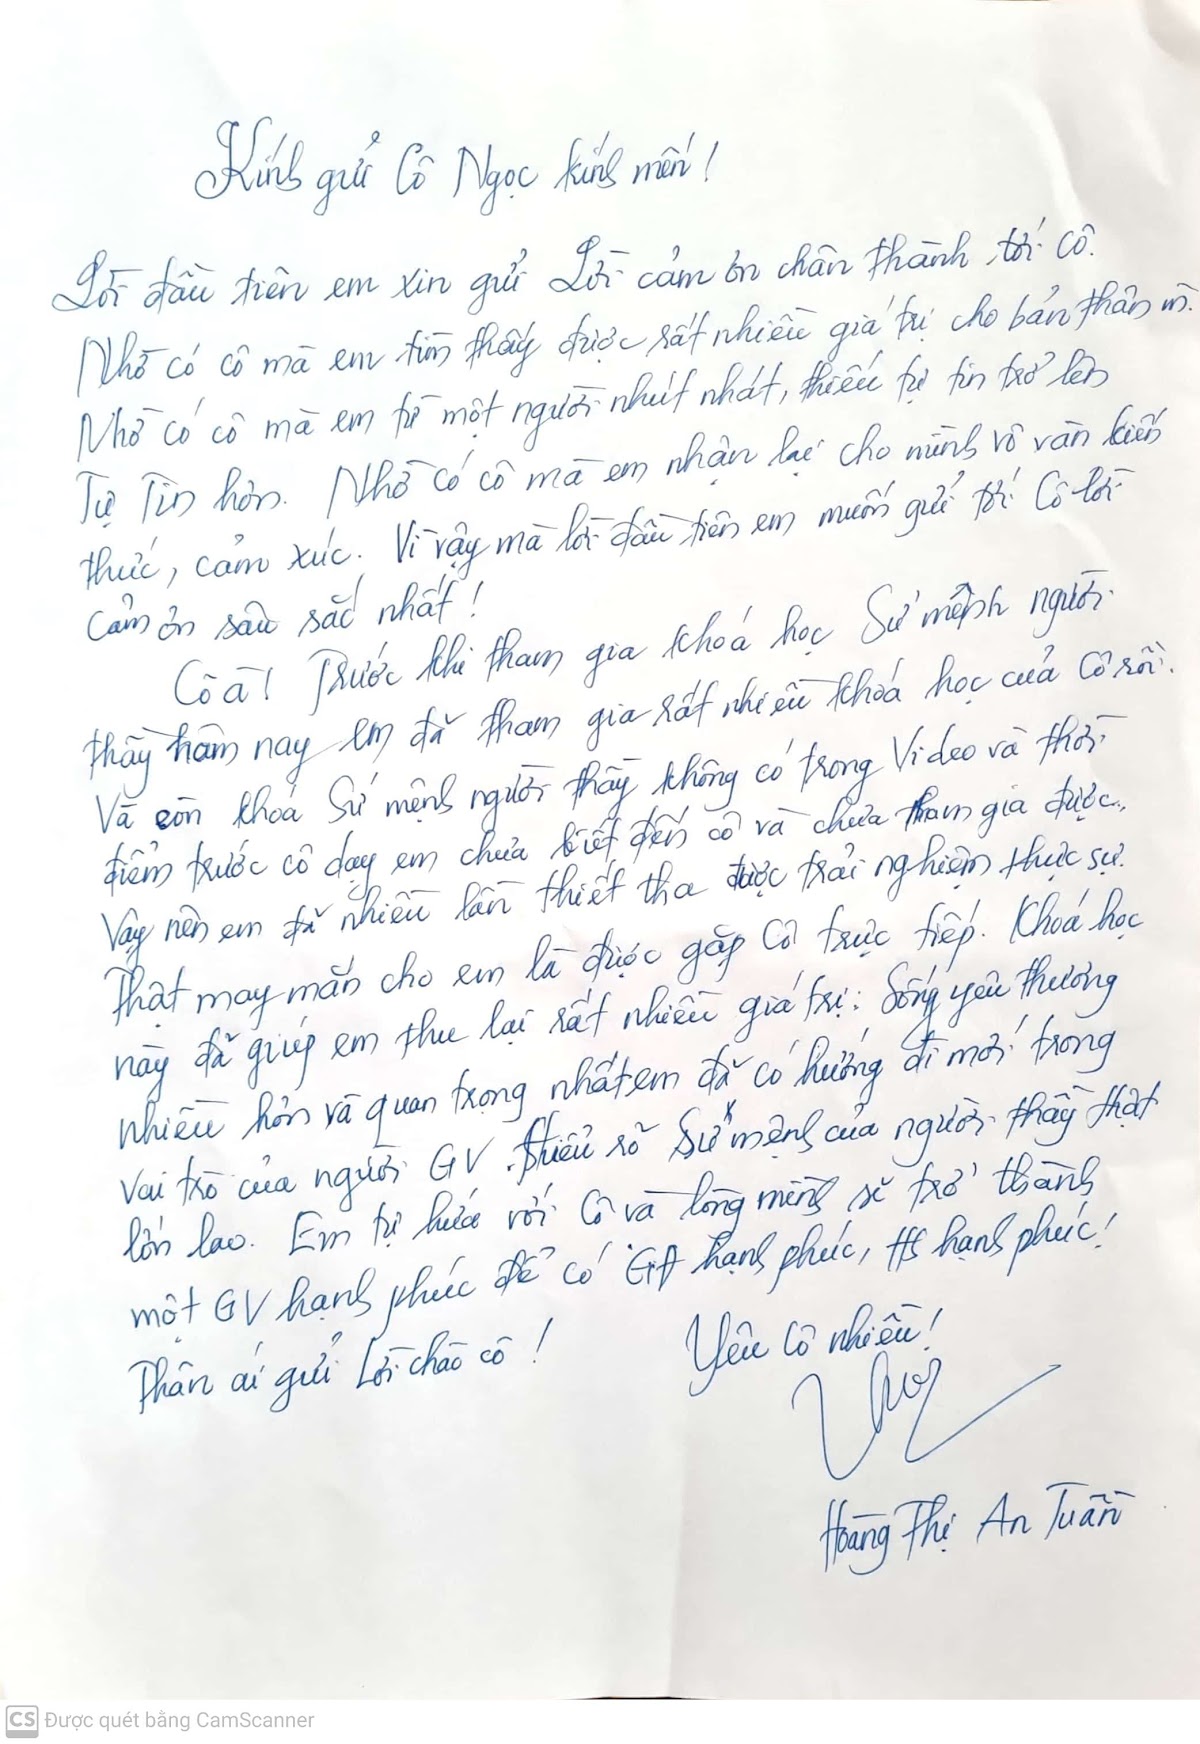 Kính gửi Cô Ngọc kính mến!
Lời đầu tiên em xin gửi Lời cảm ơn chân thành tới cô.
Nhờ có cô mà em tìm thấy được rất nhiều giá trị cho bản thân m.
Nhờ có cô mà em từ một người nhút nhát, thiếu tự tin trở lên
Tự Tin hơn. Nhờ có cô mà em nhận lại cho mình vô vàn kiến
thức, cảm xúc. Vì vậy mà lời đầu tiên em muốn gửi tới Cô lời
cảm ơn sâu sắc nhất!
Cô à! Trước khi tham gia khoá học Sứ mệnh người
thầy hôm nay em đã tham gia rất nhiều khóa học của Cô rồi.
Và còn khoá Sứ mệnh người thầy không có trong Video và thời
điểm trước cô dạy em chưa biết đến cô và chưa tham gia được.
Vậy nên em đã nhiều lần thiết tha được trải nghiệm thực sự.
Thật may mắn cho em là được gặp Cô trực tiếp. Khoá học
này đã giúp em thu lại rất nhiều giá trị: Sống yêu thương
nhiều hơn và quan trọng nhất em đã có hướng đi mới trong
vai trò của người GV. thiểu rõ Sứ mệnh của người thầy thật
lớn lao. Em tự hứa với Cô và lòng mình sẽ trở thành
một GV hạnh phúc để có GĐ hạnh phúc, HS hạnh phúc!
Thân ái gửi Lời chào cô!
Yêu Cô nhiều!
Hoàng Thị An Tuần
CS Được quét bằng CamScanner